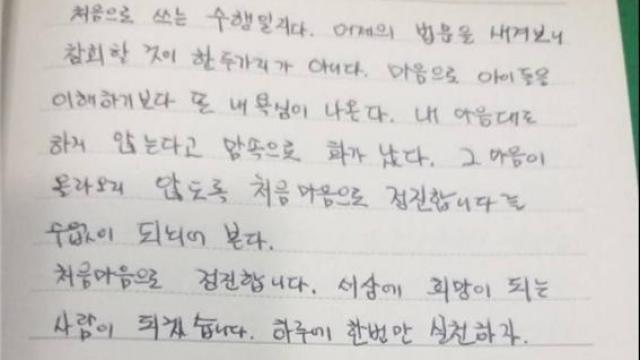 처음으로 쓰는 수행일지다. 어제의 법문을 새겨보니
참회할 것이 한두가지가 아니다. 마음으로 아이들을
이해하기보다 또 내 욕심이 나온다. 내 마음대로
하지 않는다고 맘속으로 화가 났다. 그 마음이
올라오지 않도록 처음마음으로 정진합니다를
수없이 되뇌어 본다.
처음마음으로 정진합니다. 세상에 희망이 되는
사람이 되겠습니다. 하루에 한번만 실천하자.